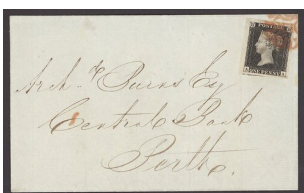 POSTAGE
ONE PENNY
Archd Burns Esq
Central Bank
Perth.